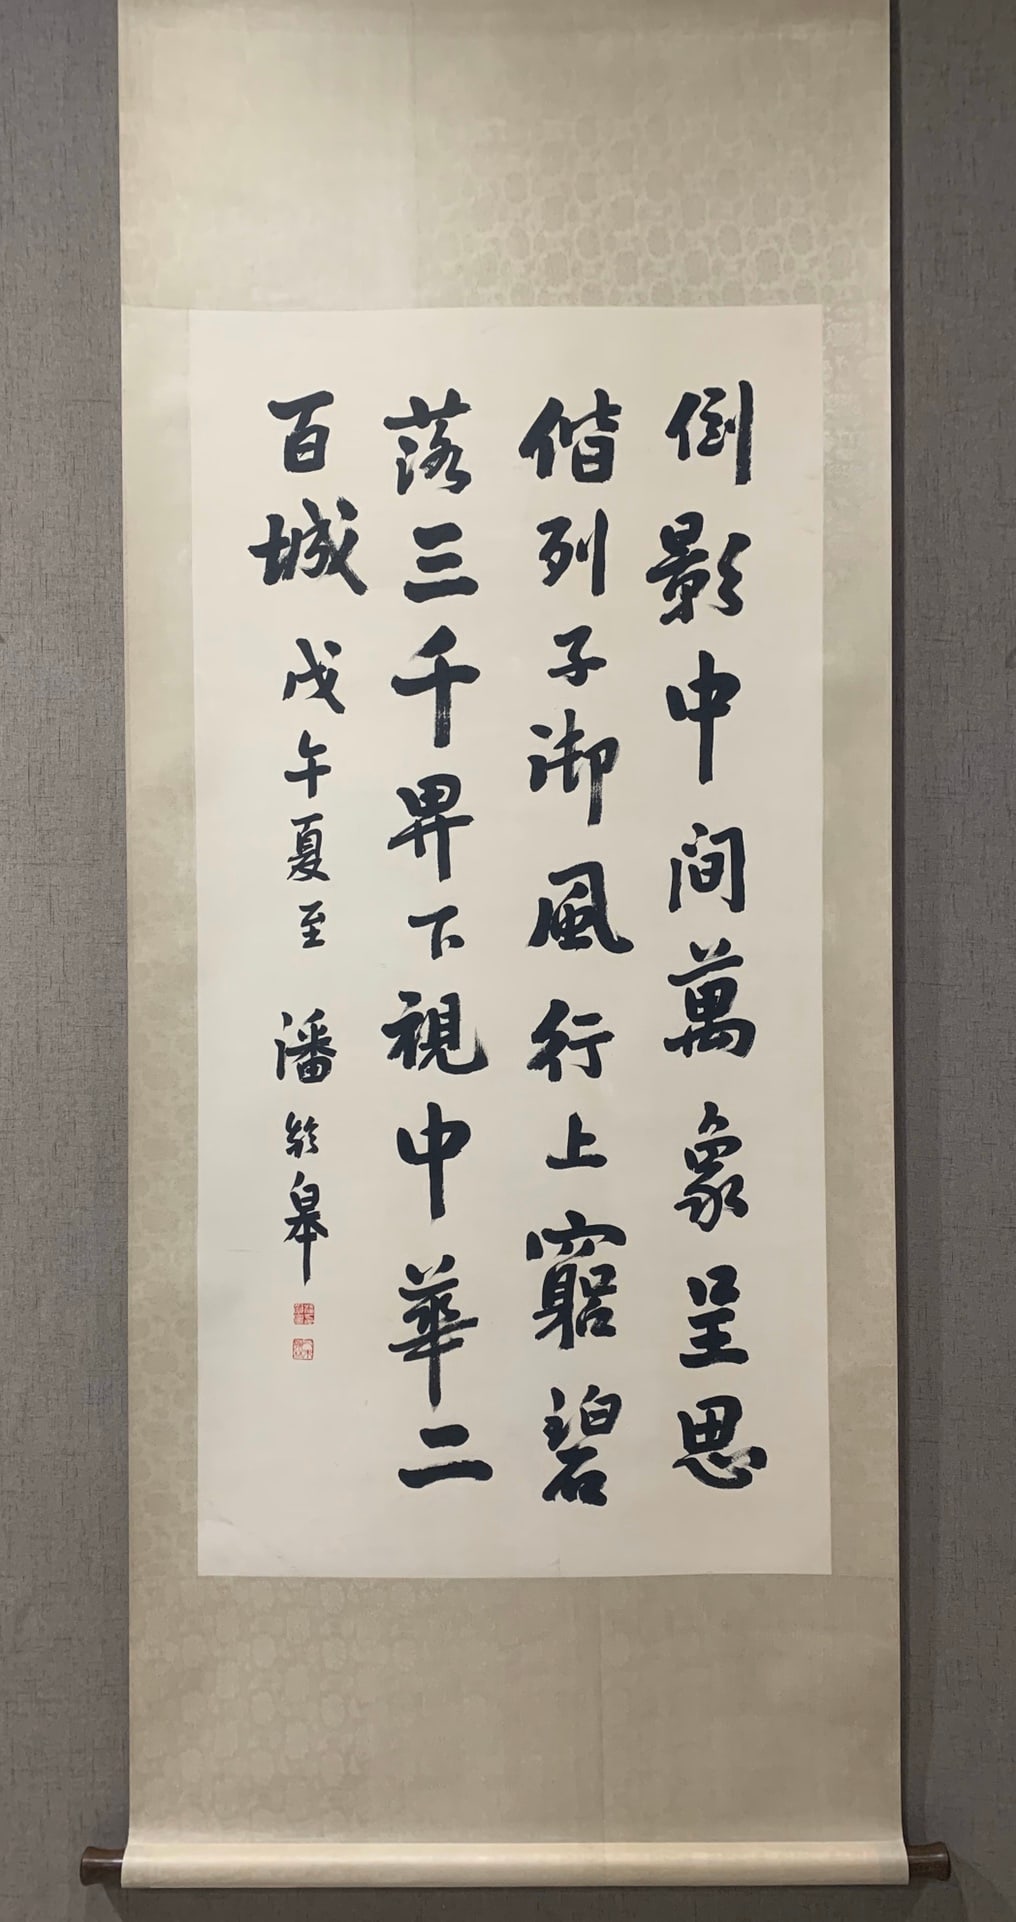 倒影中间萬象呈思
偕列子御風行上窮碧
落三千界下視中華二
百城 戊午夏至 潘齡皋